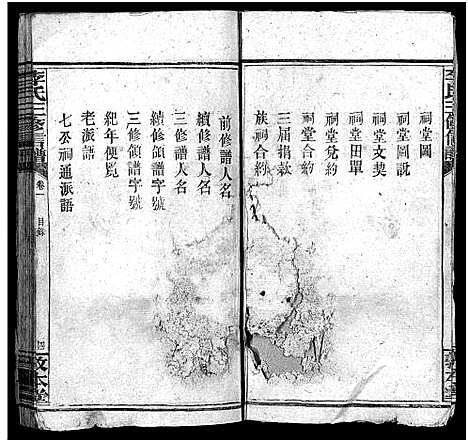 祠堂圖
祠堂圖說
祠堂文契
祠堂田單
祠堂兌約
祠堂合約
三屆捐款
族祠合約
前修譜人名
續修譜人名
三修譜人名
續修領譜字號
三修領譜字號
紀年便覧
老派語
七公祠通派語
李氏三修信譜
卷一
目錄
敦本堂
李氏三修信譜
敦本堂